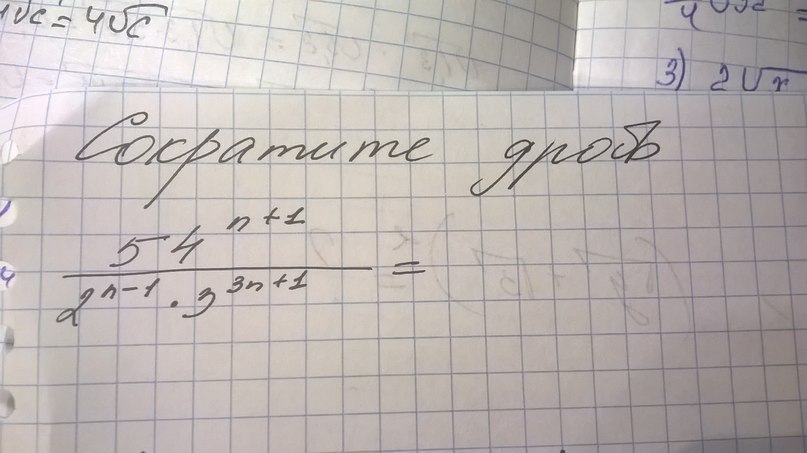 √c = 4√c
3) 2√x
Сократите дробь
54^{n+1}
2^{n-1} · 3^{3n+1} =